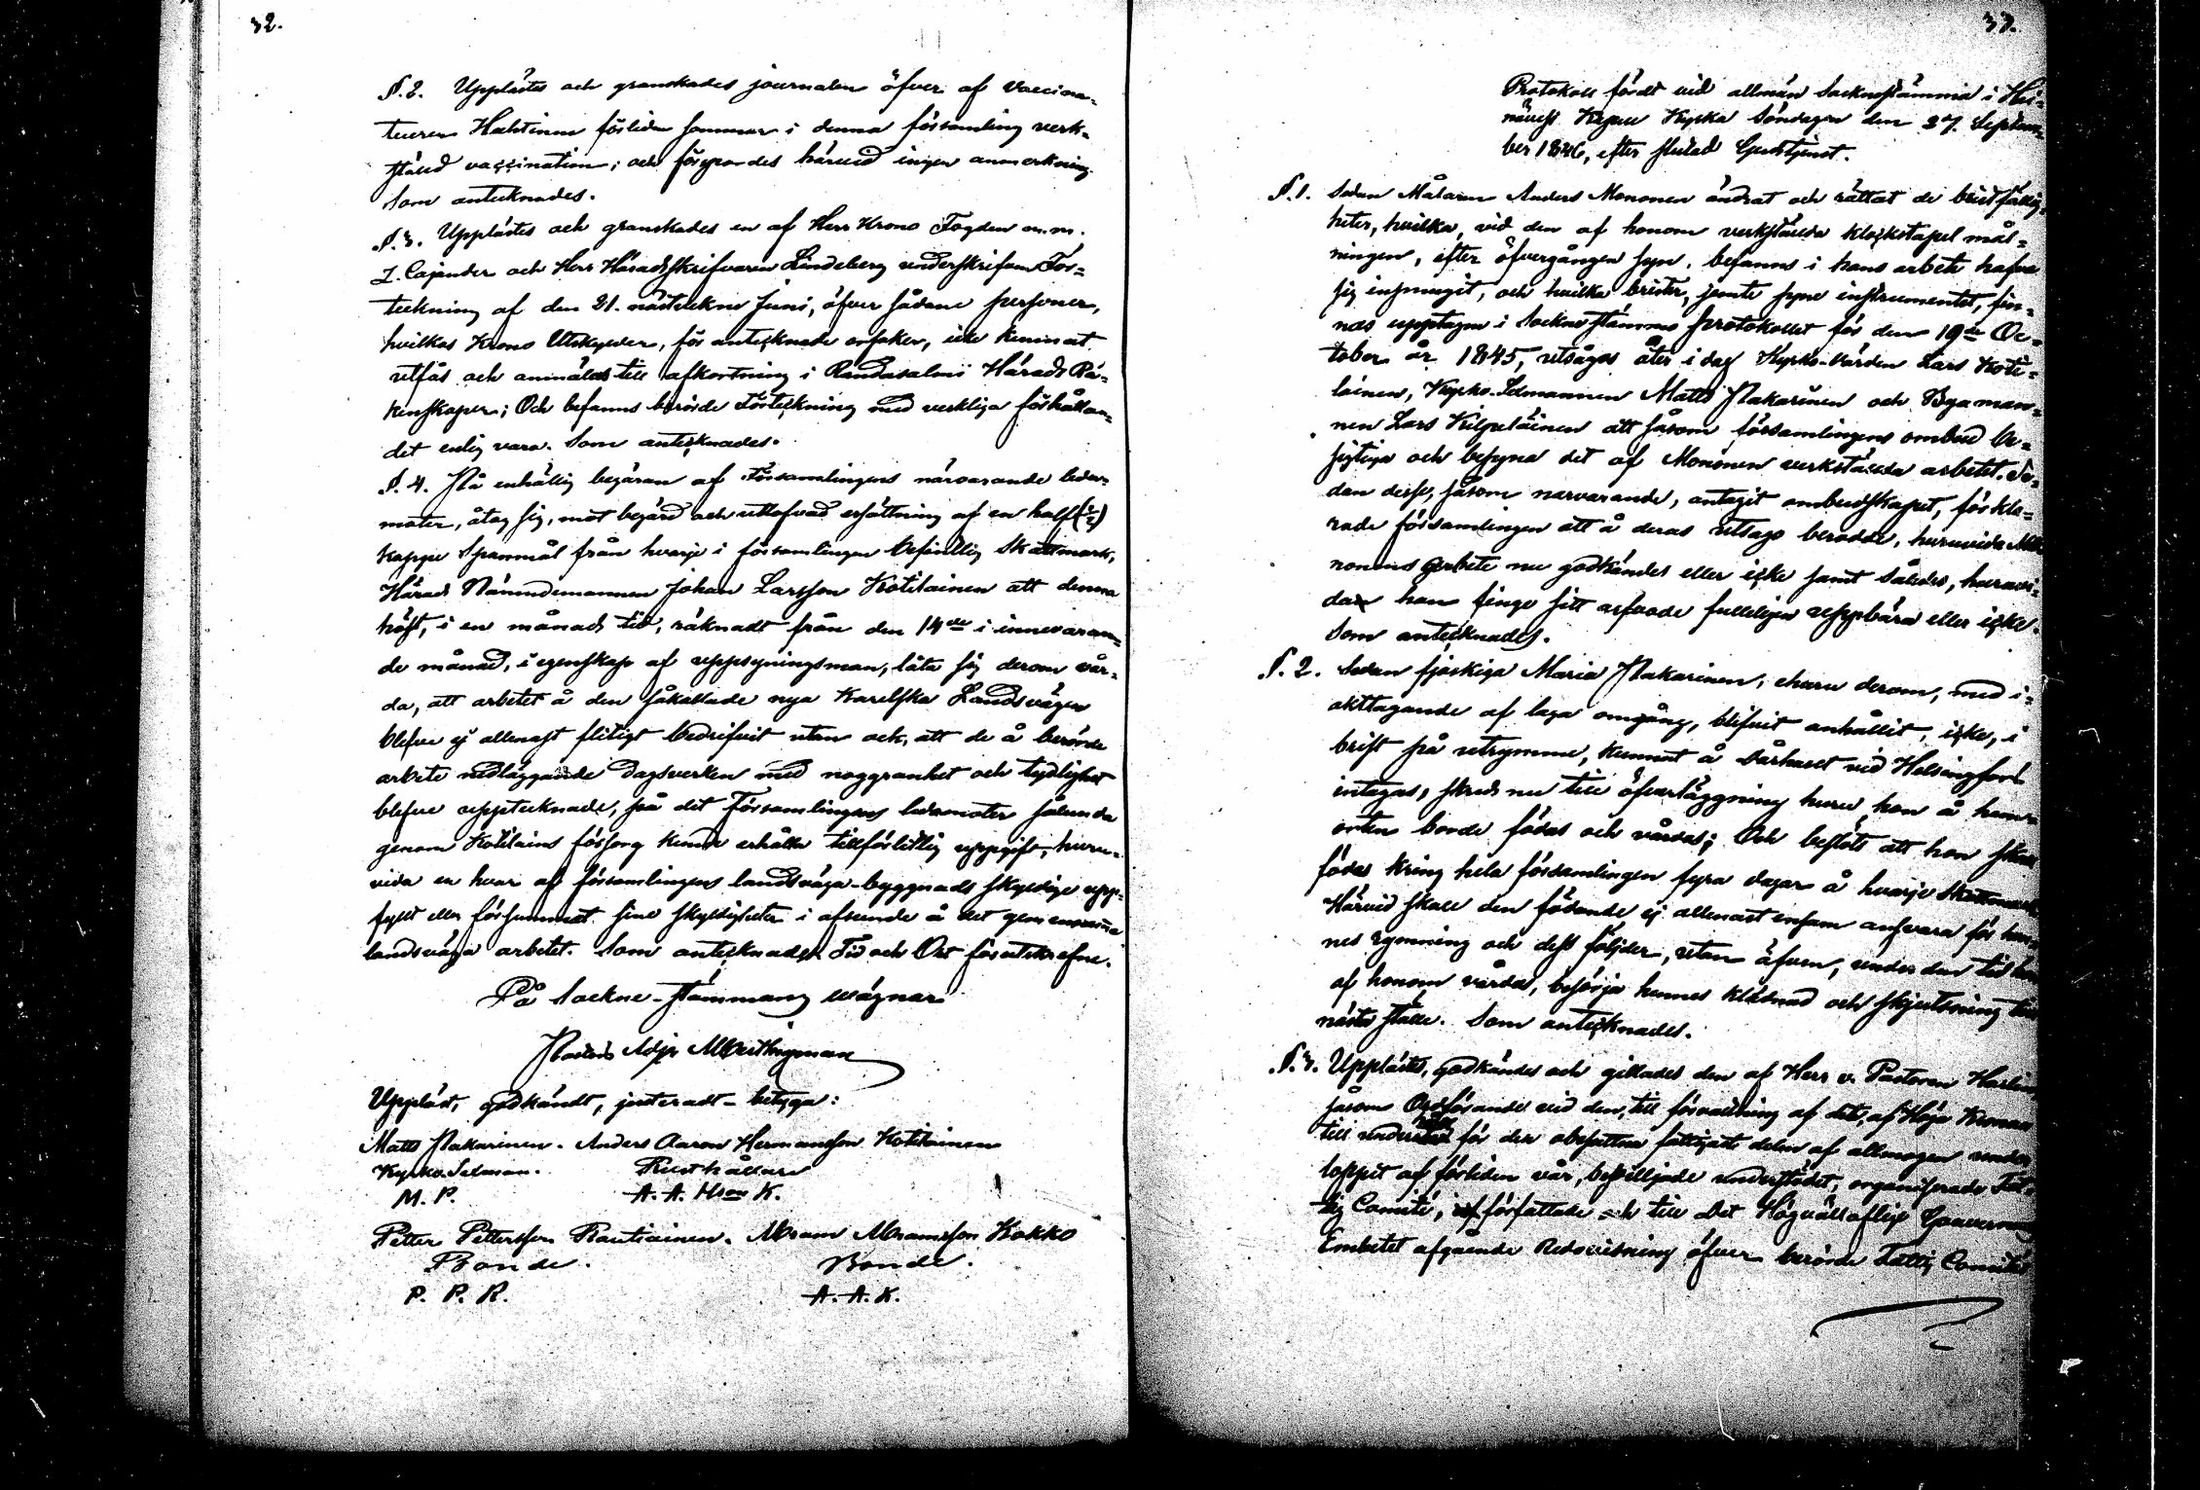 32.
§. 2. Upplästes och granskades journalen öfver af Vaccina-
teuren Hahtinen förliden sommar i denna församling verk-
ställd vaccination; och försporrdes härvid ingen anmärkning.
Som antecknades.
§. 3. Upplästes och granskades en af Herr Krono Fogden m.m.
J. Cajander och Herr Häradsskrifvaren Lindeberg underskrifven För-
teckning af den 21. nästvekne Juni, öfver sådane personer,
hvilkas Krono Utskylder, för antecknade orsaker, icke kunnat
utfås och anmälts till afkortning i Randasalmi Härads Rä-
kenskaper; Och befanns berörde Förteckning med verkliga förhållan-
det enlig vara. Som antecknades.
§. 4. På enhällig begäran af Församlingens närvarande leda-
möter, åtog sig, mot begärd och utlofvad ersättning af en half (½)
kappe Spannmål från hvarje i församlingen befintlig Skattmark,
Härads Nämndemannen Johan Larsson Kotilainen att denna
höst, i en månads tid, räknadt från den 14de i innevaran-
de månad, i egenskap af uppsyningsman, låta sig derom vår-
da, att arbetet å den såkallade nya Karelska Landsvägen
blefve ej allenast flitigt bedrifvit utan ock, att de å berörde
arbete nedläggande Dagsverken med noggranhet och tydlighet
blefve upptecknade, på det Församlingens ledamöter sålunda
genom Kotilains försorg kunde erhålla tillförlitlig uppgift, huru-
vida en hvar af församlingens landsväga-byggnads skyldige upp-
fyllt eller försummat sine skyldigheter i afseende å det gemensamma
landsväga arbetet. Som antecknades. Tid och Ort förutskrefne.
På Sockne-stämmans vägnar
Pastors Adjt
Uppläst, godkändt, justeradt - betyga:
Matts Pakarinen. Anders Aaron Hermansson Kotilainen
Kyrko Sexman. Rusthållare
M. P. A. A. Hson K.
Petter Pettersson Rautiainen. Abram Abramsson Kokko
Bonde. Bonde.
P. P. R. A. A. K.
33.
Protokoll fördt vid allmän Socknestämma i Hei-
nävesi Kapell Kyrka Söndagen den 27. Septem-
ber 1846, efter slutad Gudstjenst.
§. 1. Sedan Målaren Anders Mononen ändrat och rättat de bristfällig-
heter, hvilka, vid den af honom verkställda klockstapel mål-
ningen, efter öfvergången syn, befanns i hans arbete hafva
sig insmugit, och hvilka brister, jemte syne instrumentet, fin-
nas upptagne i Sockne stämmo protokollet för den 19de Oc-
tober år 1845, utsågos åter i dag Kyrko-värden Lars Koti-
lainen, Kyrko-Sexmannen Matts Pakarinen och Byaman-
nen Lars Kilpeläinen att såsom församlingens ombud be-
sigtiga och besyna det af Mononen verkställda arbetet. Se-
dan desse, såsom närvarande, antagit ombudskapet, förkla-
rade församlingen att å deras utsago berodde, huruvida Mo-
nonens arbete nu godkändes eller icke samt således, huruvi-
da han finge sitt arfvode fullkligen uppbära eller icke.
Som antecknades.
§. 2. Sedan sjukliga Maria Pakarinen, ehuru derom, med i-
akttagande af laga omgång, blifvit anhållit, icke, i
brist på utrymme, kunnat å Dårhuset vid Helsingfors
intagas, skreds nu till öfverläggning huru hon å hem-
orten borde födas och vårdas; Och beslöts att hon skall
födas kring hela församlingen fyra dagar å hvarje Skattmark
Härvid skall den födande ej allenast ensam ansvara för hen-
nes rymning och dess följder, utan äfven, under den tid hon
af honom vårdas, besörja hennes klädnad och skjutsning till
nästa ställe. Som antecknades.
§. 3. Upplästes, godkändes och gillades den af Herr v. Pastoren
såsom Ordförande vid den, till förvaltning af det, af Höga Kronan
till för den obesuttna fattigaste delen af allmogen under
loppet af förliden vår, beviljade understödet, organiserade Fat-
tig Comité, författade och till Det Högvällofliga Gouverns
Embetet afgående Redovisning öfver berörde Fattig Comités